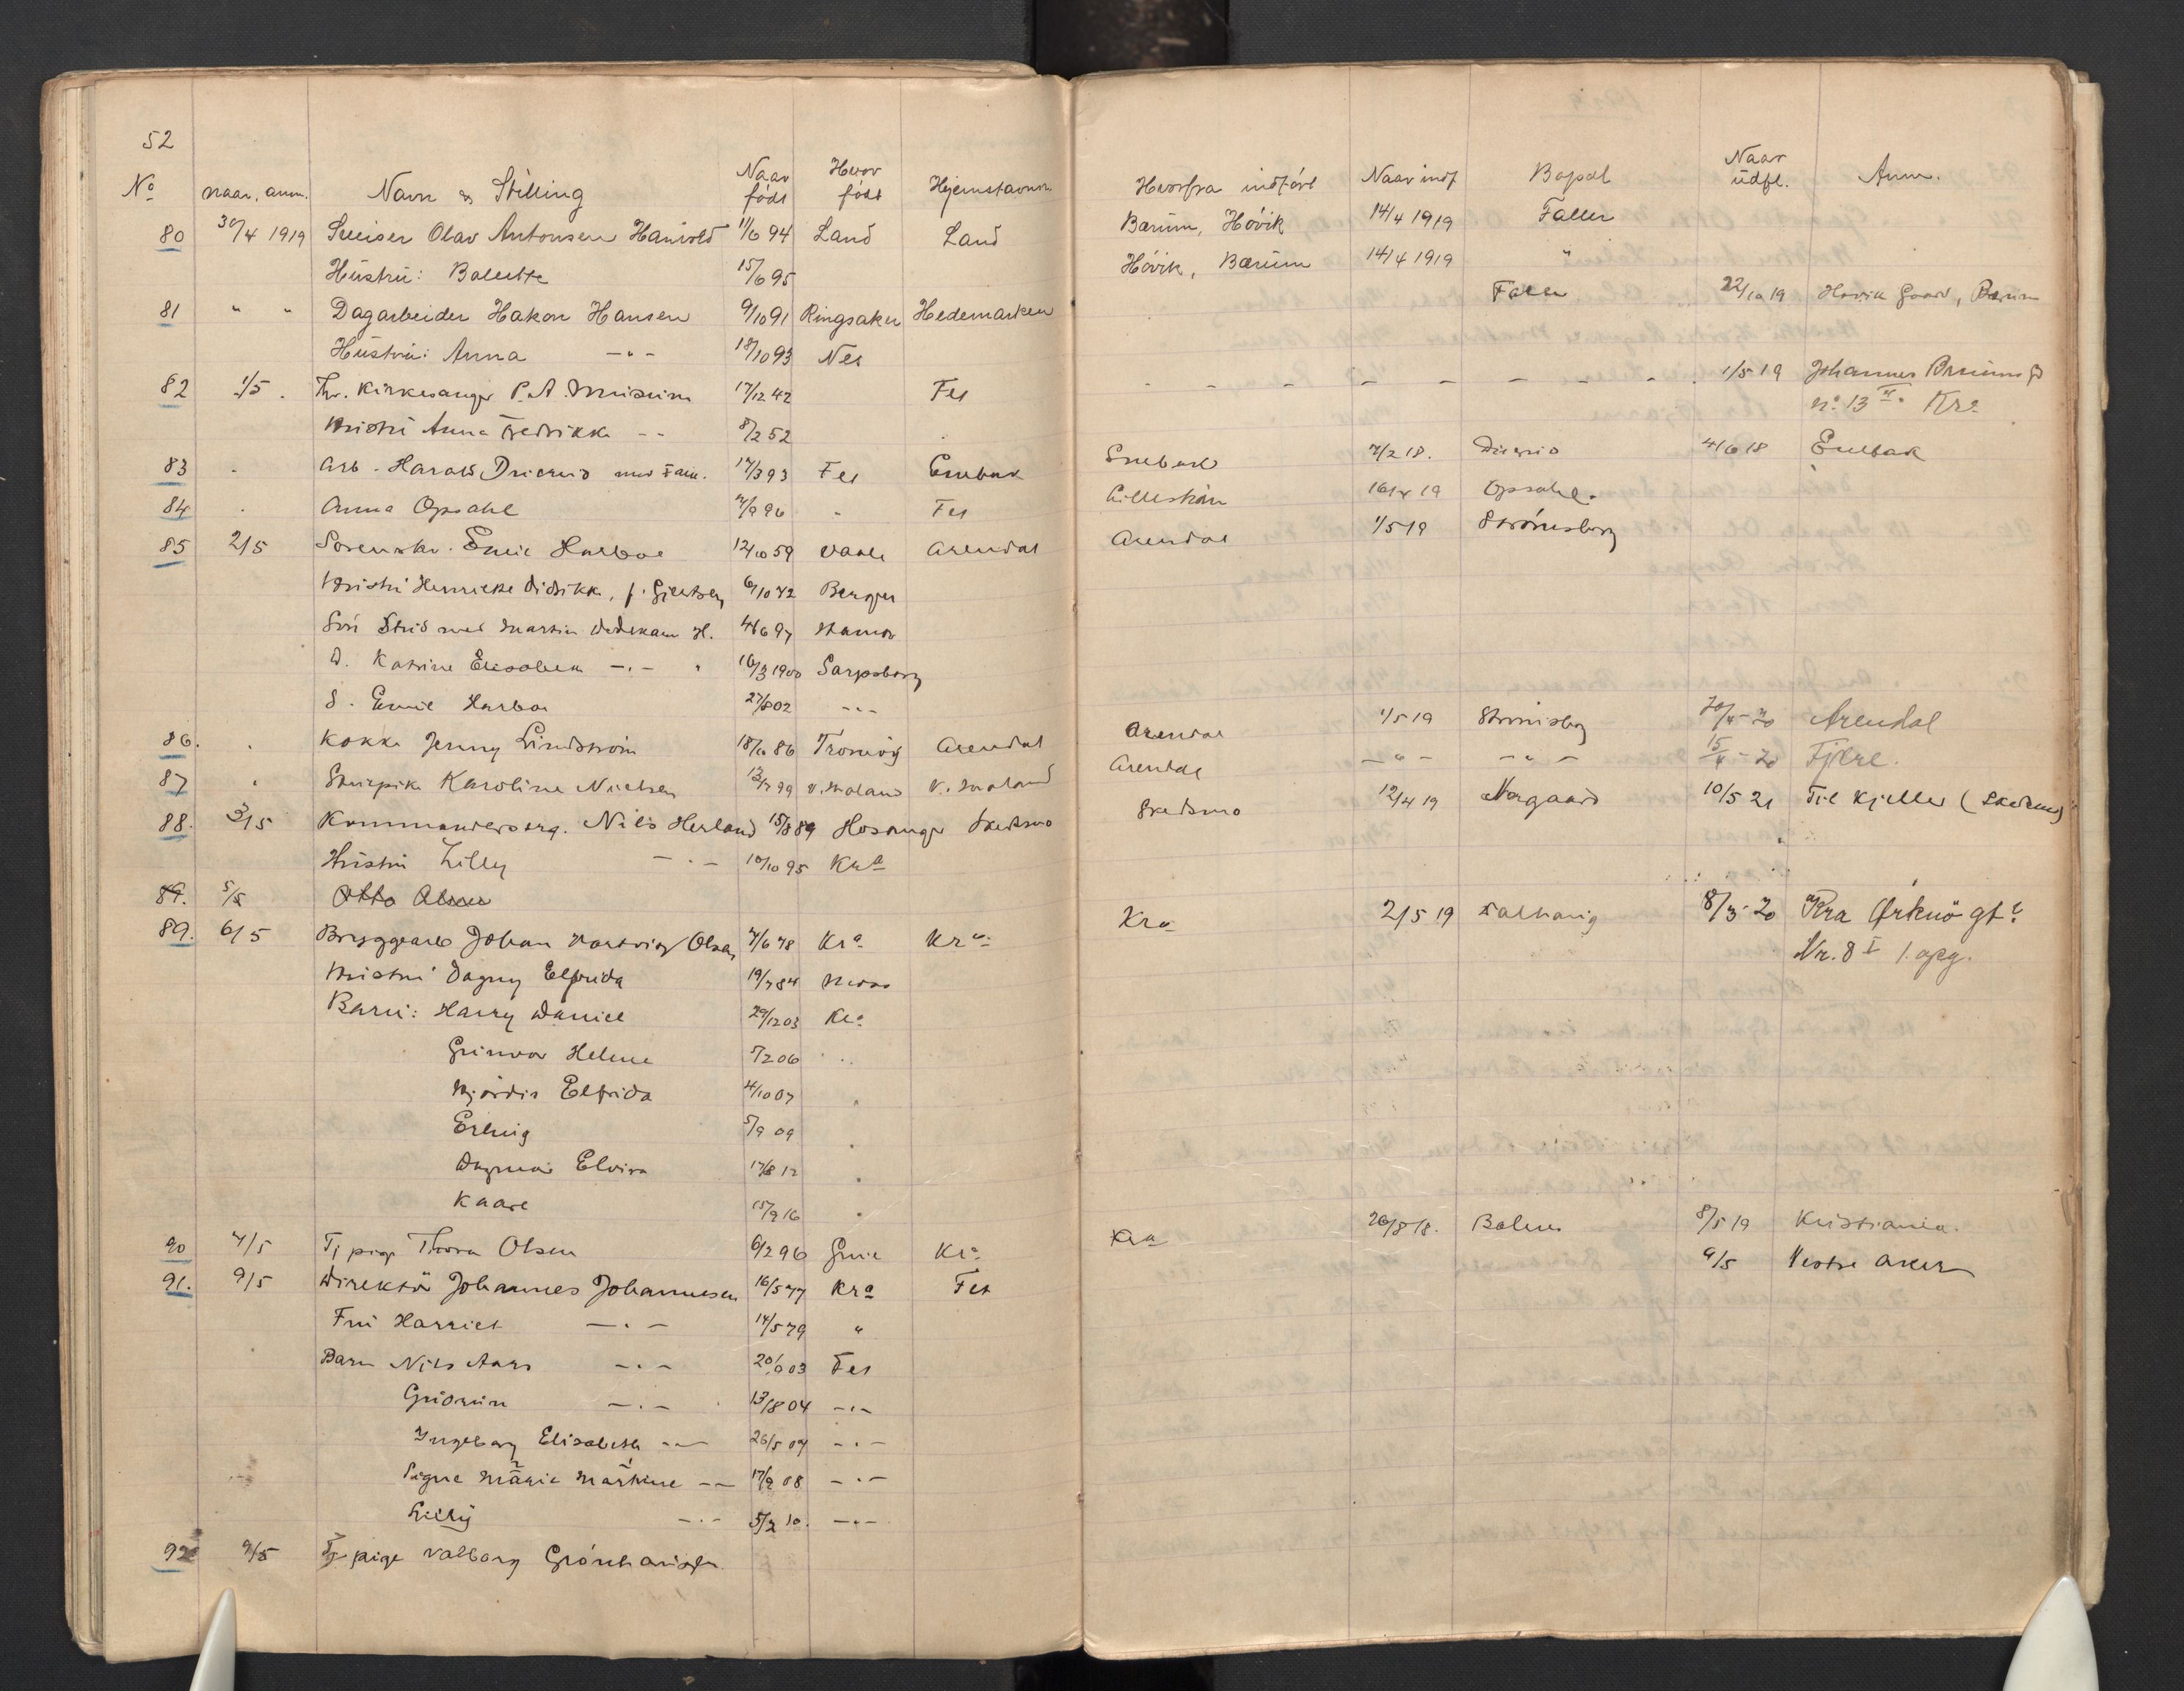 52
No naar. anm. Navn & Stilling Naar født Hvor født Hjemstavn Hvorfra indført Naar indf Bopæl Naar udfl. Anm.
80 30/4 1919 Sveiser Olav Antonsen 11/6 94 Land Land Bærum, Høvik 14/4 1919 Faller
Hustru: 15/6 95 Høvik, Bærum 14/4 1919 "
81 " " Dagarbeider Hakon Hansen 9/10 91 Ringsaker Hedemarken 22/10 19 Høvik Gaard, Bærum
Hustru: Anna —"— 18/10 93 Nes
82 1/5 . Fhv. Kirkesanger P. A. 17/12 42 Fet - - - - - - - 1/5 19 Johannes Bruuns G
no 13 Kra
Hustru Anna Fredrikke -- 8/2 52
83 . Arb. Harald med Fam. 17/3 93 Fet Enebak Enebak 7/2 18. 4/6 18 Enebak
84 . Anna Opsahl 96 " Fet 19 Opsahl.
85 2/5 Sorenskr. Emil Harboe 12/10 59 Vaale Arendal Arendal 1/5 19 Strømsborg
Hustru Henrikke Didrikke, f. Giertsen 6/10 72 Bergen
Søn Stud med Martin H. 4/6 97 Hamar
D. Katrine Elisabeth —.— " 16/3 1900 Sarpsborg
S. Emil Harboe 27/8 02 ---
86. . Kokke Jenny Lindstrøm 86 Tromøy Arendal Arendal 1/5 19 20 Arendal
87 " Stuepike Karoline Nielsen 99 Arendal —"— —"— 20 Fjære.
88. 3/5 Kommandersarg. Nils Herland 15/8 89 Hosanger Skedsmo Skedsmo 12/4 19 Nergaard 10/5 21 Til Kjeller (Skedsmo)
Hustru Lilly —.— 10/10 95 Kra
89. 5/5 Otto
89. 6/5 Bryggearb Johan Hartvig Olsen 7/6 78 Kra Kra Kra 2/5 19 8/3-20 Kra Ørknø gt.
Nr. 8 I 1. opg.
Hustru Dagny Elfrida 19/7 84 Moss
Barn: Harry Daniel 29/12 03 Kra
Gunvor Helene 5/2 06 "
Hjørdis Elfrida 4/10 07 "
Erling 5/9 09 "
Dagmar Elvira 17/8 12 "
Kaare 15/9 16 "
90 7/5 Tj pige Thora Olsen 6/2 96 Kra Kra 26/8 18. 8/5 19 Kristiania.
91. 9/5 Direktør Johannes Johannesen 16/5 77 Kra Fet 9/5 Vestre Aker
Fru Harriet —.— 14/5 79 "
Barn Nils Aars —.— 03 Fet
Gudrun —.— 13/8 04 —.—
Ingeborg Elisabeth —.— 26/5 07 —.—
Signe Marie Martine —— 17/9 08 —.—
Lilly —.— 5/2 10. —.—
92 9/5 Tj pige Valborg